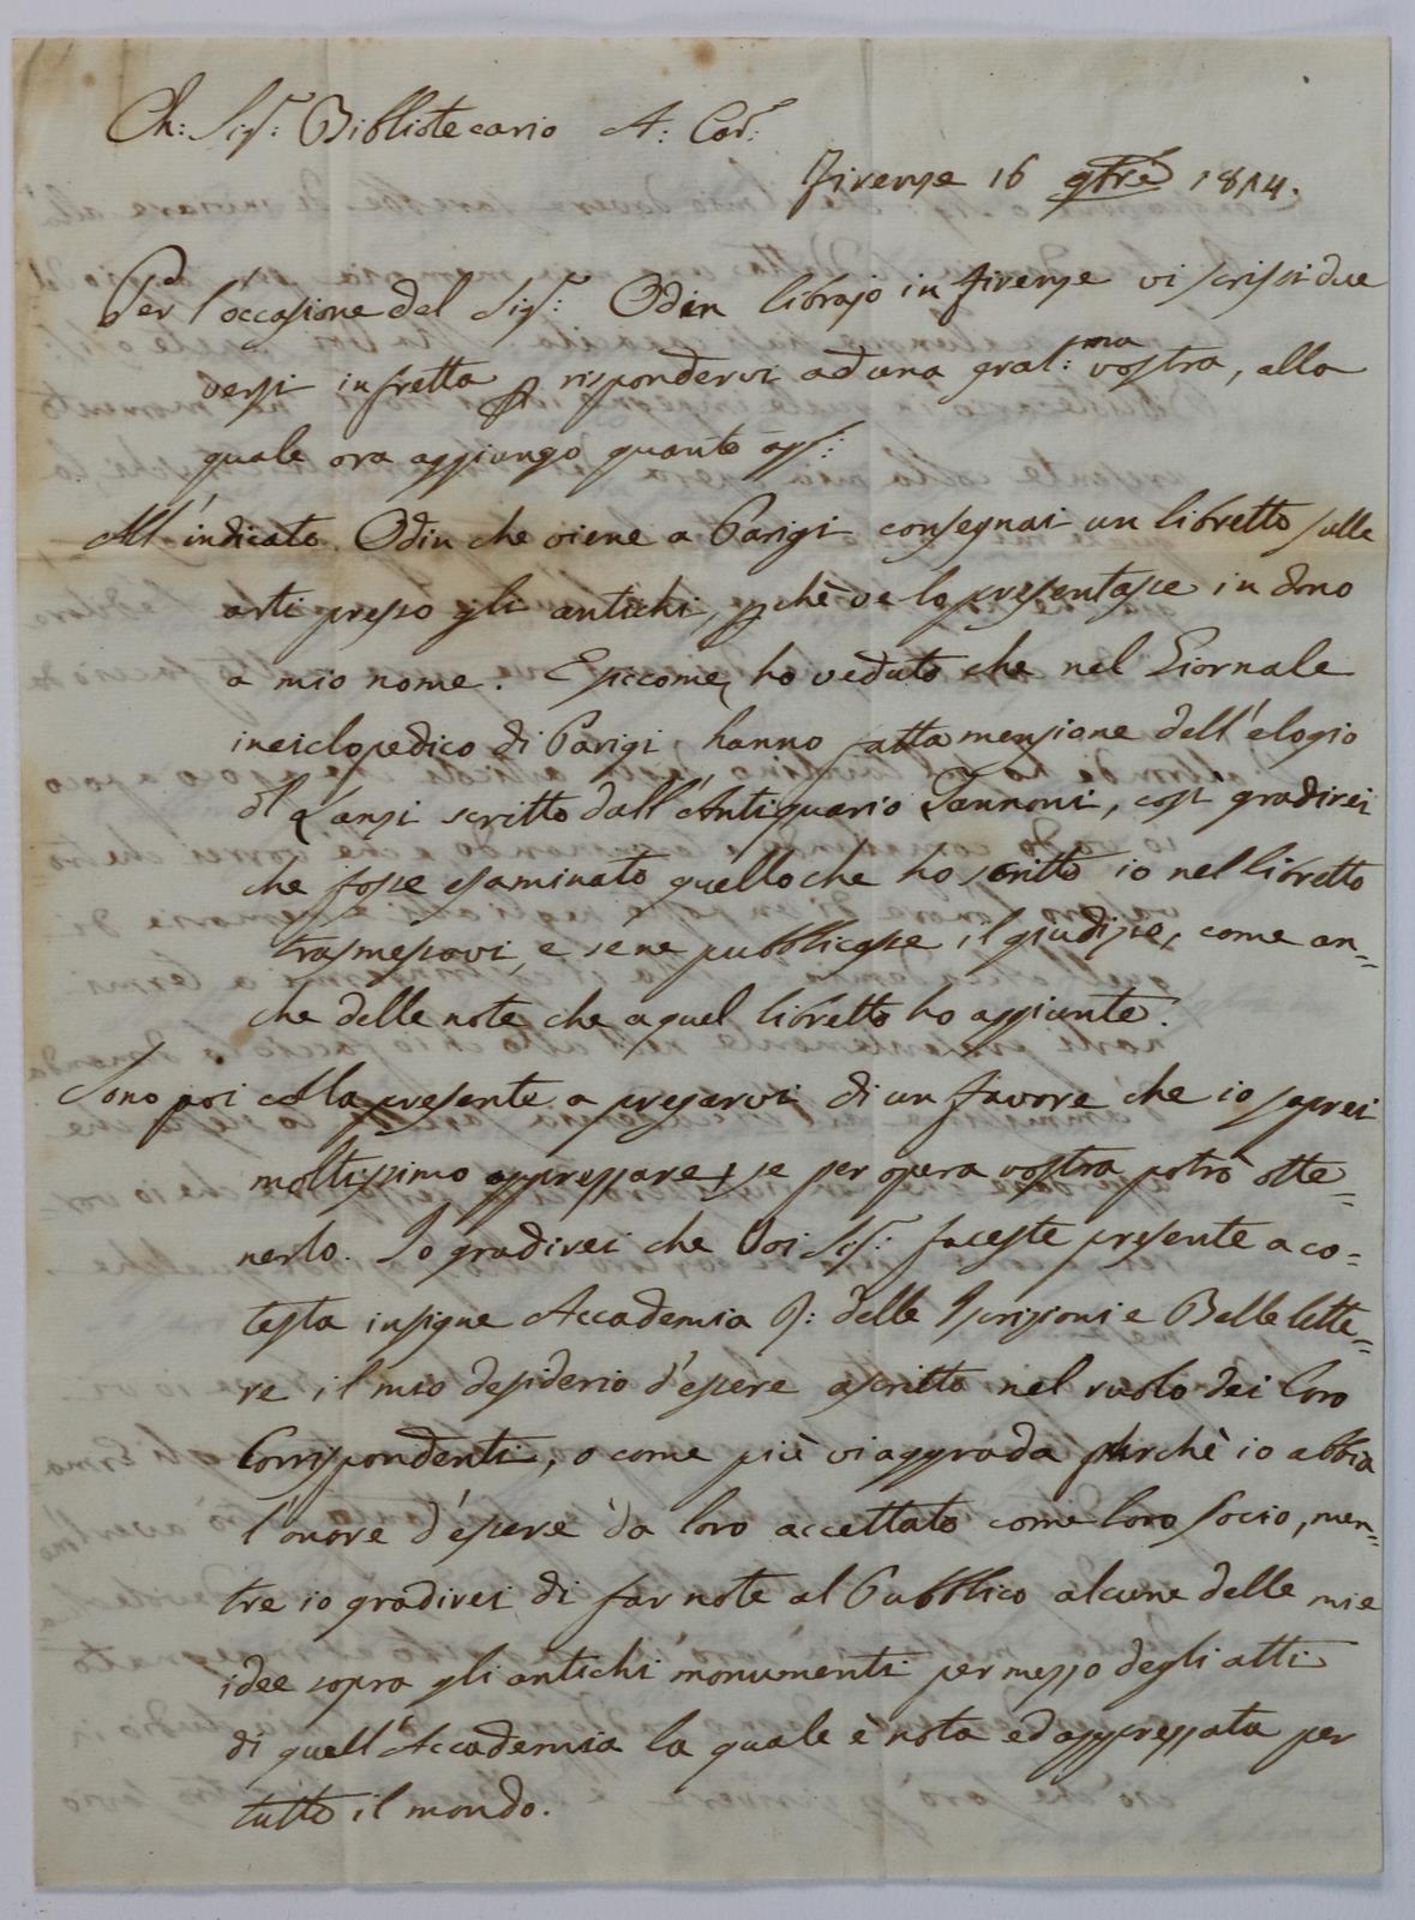 Ch: Sigr: Bibliotecario A: Car:
Firenze 16 9bre 1814.
Per l'occasione del Sigr: Odin librajo in Firenze vi scrissi due
versi in fretta p rispondervi ad una grat:ma vostra, alla
quale ora aggiungo quanto apo:
All'indicato Odin che viene a Parigi consegnai un libretto sulle
arti presso gli antichi, pchè ve lo presentasse in dono
a mio nome. E siccome ho veduto che nel Giornale
inciclopedico di Parigi hanno fatta menzione dell'elogio
dl Lanzi scritto dall'Antiquario Zannoni, così gradirei
che fosse esaminato quello che ho scritto io nel libretto
trasmessovi, e se ne pubblicasse il giudizio, come an=
che delle note che a quel libretto ho aggiunte.
Sono poi colla presente a pregarvi di un favore che io saprei
moltissimo apprezzare, se per opera vostra potrò otte=
nerlo. Io gradirei che Voi Sigr: faceste presente a co=
testa insigne Accademia I: delle Iscrizioni e Belle lette=
re il mio desiderio d'essere ascritto nel ruolo dei loro
Corrispondenti, o come più vi aggrada purchè io abbia
l'onore d'essere da loro accettato come loro socio, men=
tre io gradirei di far note al Pubblico alcune delle mie
idee sopra gli antichi monumenti per mezzo degli atti
di quell'Accademia la quale è nota ed apprezzata per
tutto il mondo.